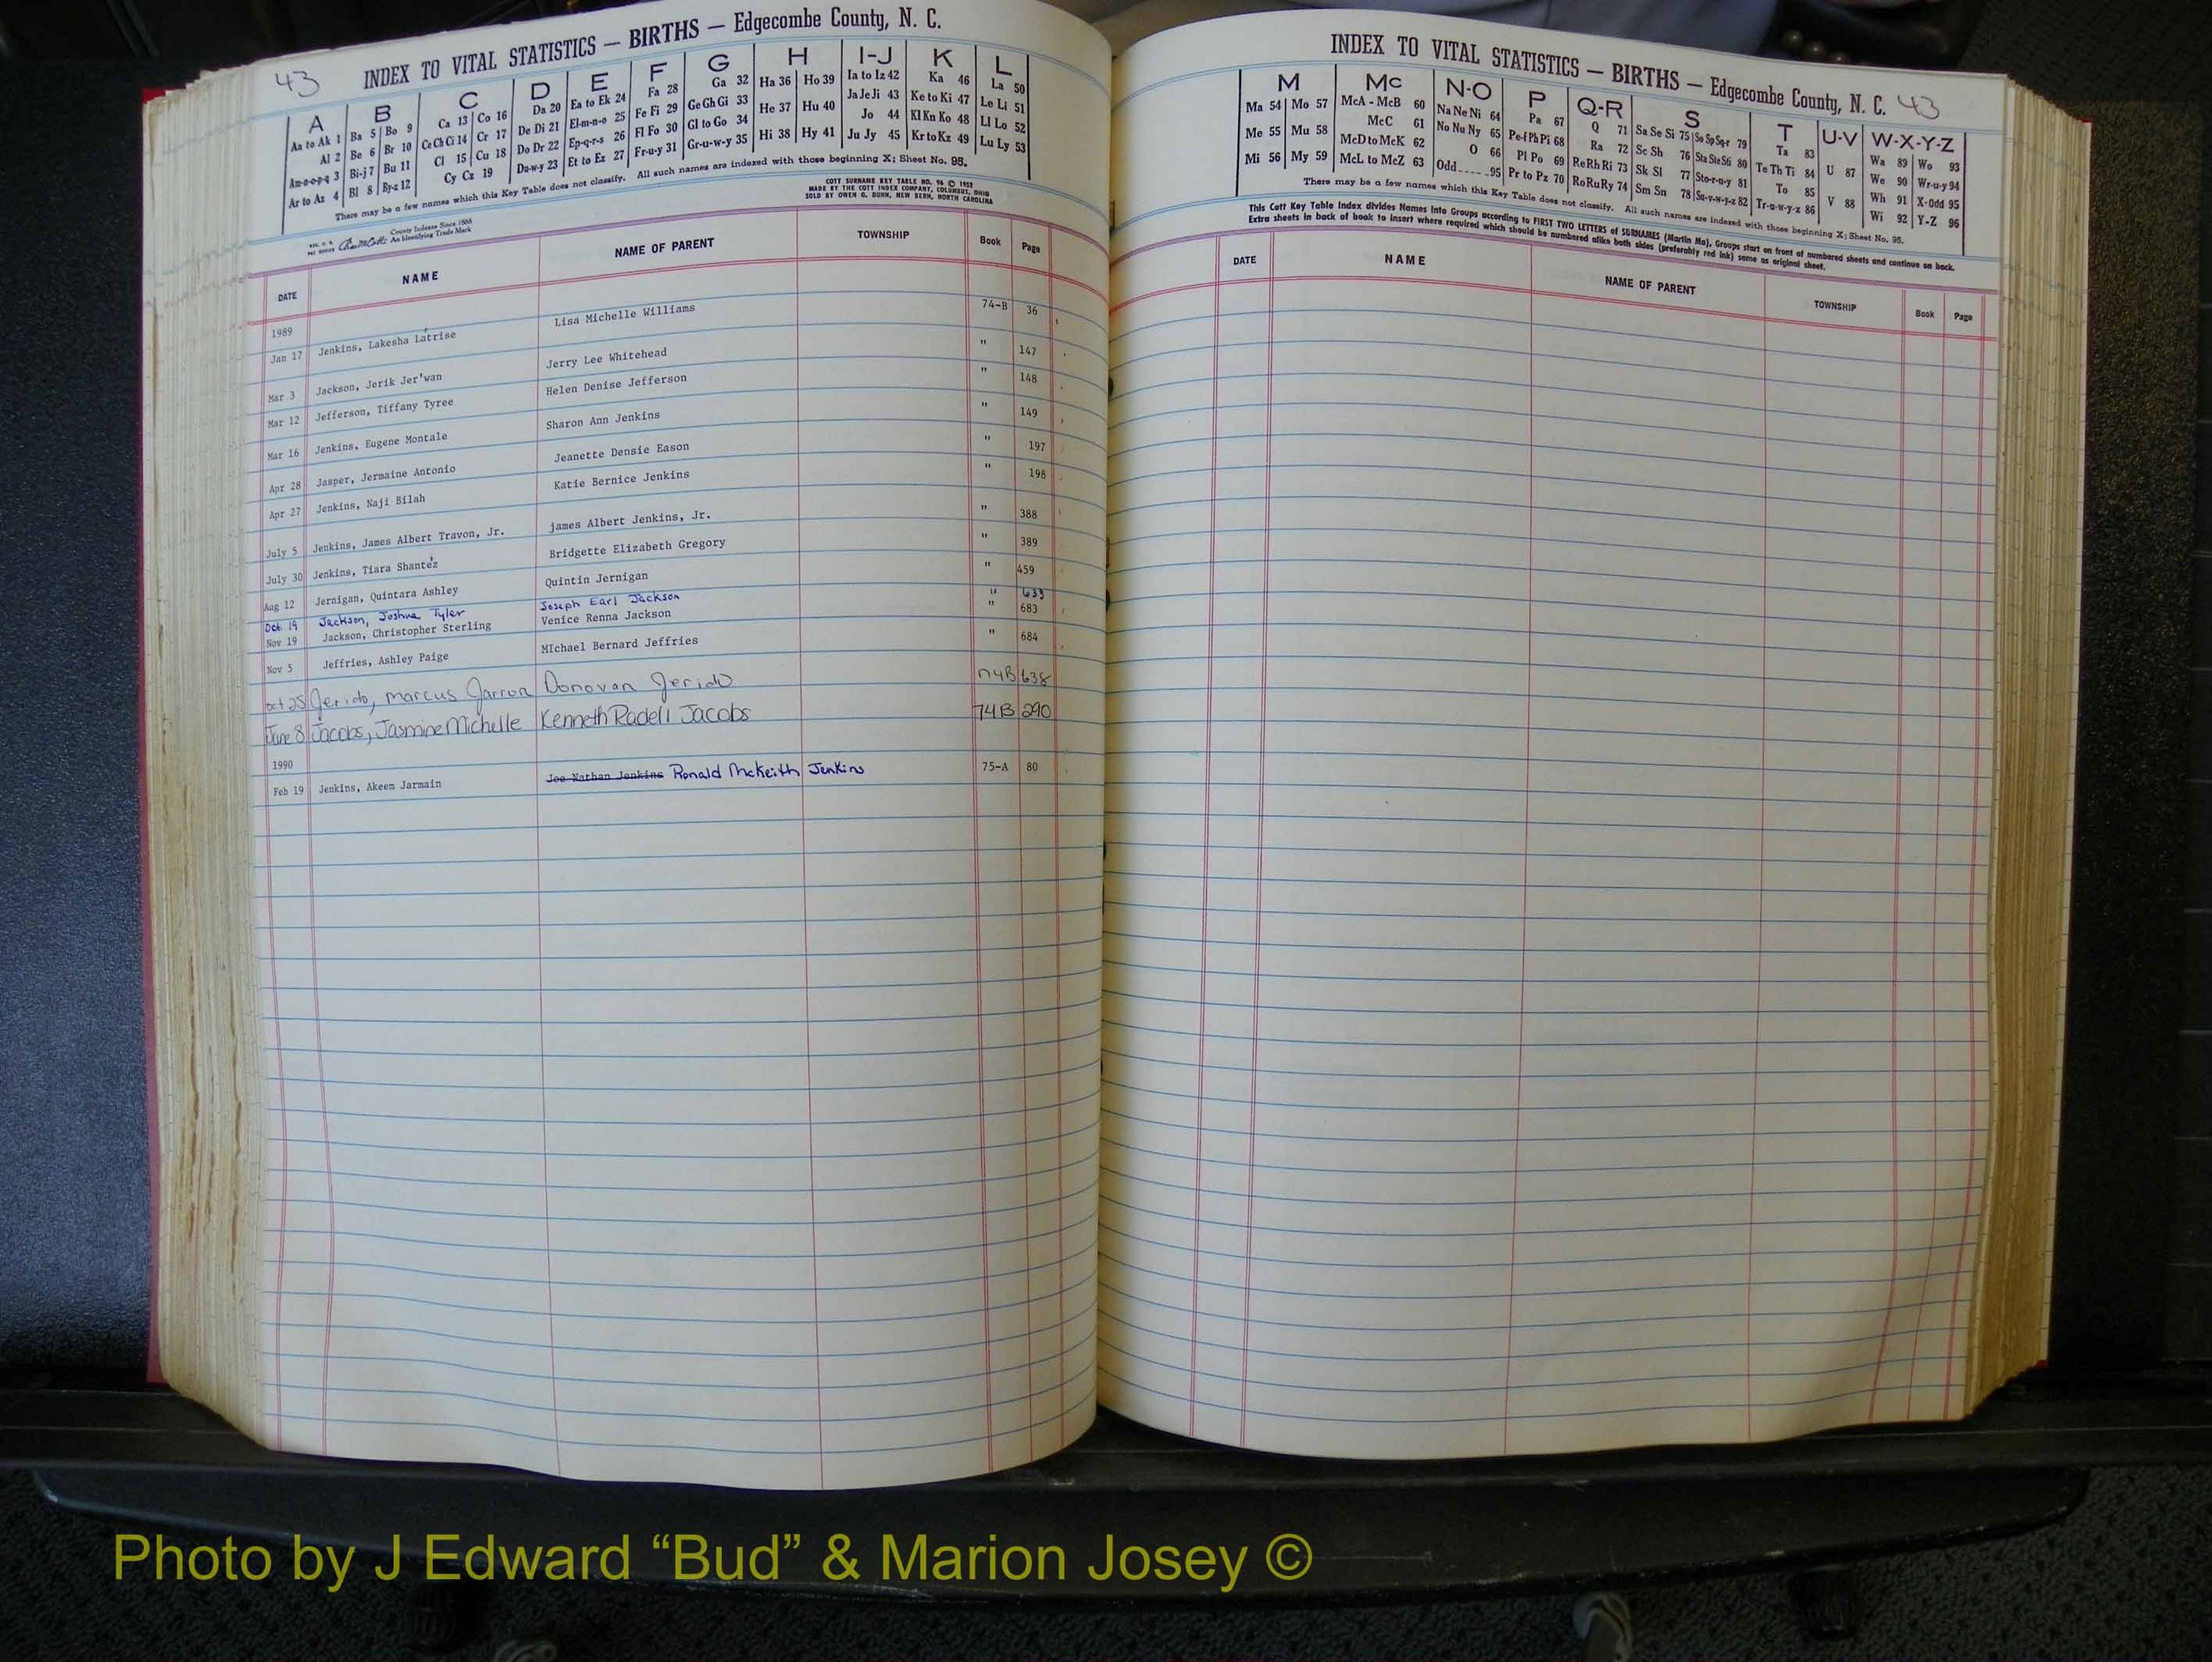 43 INDEX TO VITAL STATISTICS — BIRTHS — Edgecombe County, N. C.
A B C D E F G H I-J K L
Aa to Ak 1 Ba 5 Bo 9 Ca 13 Co 16 Da 20 Ea to Ek 24 Fa 28 Ga 32 Ha 36 Ho 39 Ia to Iz 42 Ka 46 La 50
Al 2 Be 6 Br 10 Ce Ch Ci 14 Cr 17 De Di 21 El-m-n-o 25 Fe Fi 29 Ge Gh Gi 33 He 37 Hu 40 Ja Je Ji 43 Ke to Ki 47 Le Li 51
Am-n-o-p-q 3 Bi-j 7 Bu 11 Cl 15 Cu 18 Do Dr 22 Ep-q-r-s 26 Fl Fo 30 Gl to Go 34 Hi 38 Hy 41 Jo 44 Kl Kn Ko 48 Ll Lo 52
Ar to Az 4 Bl 8 By-z 12 Cy Cz 19 Du-w-y 23 Et to Ez 27 Fr-u-y 31 Gr-u-w-y 35 Ju Jy 45 Kr to Kz 49 Lu Ly 53
There may be a few names which this Key Table does not classify. All such names are indexed with those beginning X; Sheet No. 95.
County Indexes Since 1888
An Identifying Trade Mark
COTT SURNAME KEY TABLE NO. 96 © 1952
MADE BY THE COTT INDEX COMPANY, COLUMBUS, OHIO
SOLD BY OWEN G. DUNN, NEW BERN, NORTH CAROLINA
DATE NAME NAME OF PARENT TOWNSHIP Book Page
1989
Jan 17 Jenkins, Lakesha Latrise Lisa Michelle Williams 74-B 36
Mar 3 Jackson, Jerik Jer'wan Jerry Lee Whitehead " 147
Mar 12 Jefferson, Tiffany Tyree Helen Denise Jefferson " 148
Mar 16 Jenkins, Eugene Montale Sharon Ann Jenkins " 149
Apr 28 Jasper, Jermaine Antonio Jeanette Densie Eason " 197
Apr 27 Jenkins, Naji Bilah Katie Bernice Jenkins " 198
July 5 Jenkins, James Albert Travon, Jr. james Albert Jenkins, Jr. " 388
July 30 Jenkins, Tiara Shante'z Bridgette Elizabeth Gregory " 389
Aug 12 Jernigan, Quintara Ashley Quintin Jernigan " 459
Oct. 19 Jackson, Joshua Tyler Joseph Earl Jackson " 633
Nov 19 Jackson, Christopher Sterling Venice Renna Jackson " 683
Nov 5 Jeffries, Ashley Paige MIchael Bernard Jeffries " 684
Oct 25 Jerido, Marcus Jarron Donovan Jerido 74B 638
June 8 Jacobs, Jasmine Michelle Kenneth Radell Jacobs 74B 290
1990
Feb 19 Jenkins, Akeem Jarmain Joe Nathan Jenkins Ronald McKeith Jenkins 75-A 80
INDEX TO VITAL STATISTICS — BIRTHS — Edgecombe County, N. C. 43
M Mc N-O P Q-R S T U-V W-X-Y-Z
Ma 54 Mo 57 McA - McB 60 Na Ne Ni 64 Pa 67 Q 71 Sa Se Si 75 So Sp Sq-r 79 Ta 83 U 87 Wa 89 Wo 93
Me 55 Mu 58 McC 61 No Nu Ny 65 Pe-f Ph Pi 68 Ra 72 Sc Sh 76 Sta Ste Sti 80 Te Th Ti 84 V 88 We 90 Wr-u-y 94
Mi 56 My 59 McD to McK 62 O 66 Pl Po 69 Re Rh Ri 73 Sk Sl 77 Sto-r-u-y 81 To 85 Wh 91 X-Odd 95
McL to McZ 63 Odd 95 Pr to Pz 70 Ro Ru Ry 74 Sm Sn 78 Su-v-w-y-z 82 Tr-u-w-y-z 86 Wi 92 Y-Z 96
There may be a few names which this Key Table does not classify. All such names are indexed with those beginning X; Sheet No. 95.
This Cott Key Table Index divides Names into Groups according to FIRST TWO LETTERS of SURNAMES (Martin Ma), Groups start on front of numbered sheets and continue on back.
Extra sheets in back of book to insert where required which should be numbered alike both sides (preferably red ink) same as original sheet.
DATE NAME NAME OF PARENT TOWNSHIP Book Page
Photo by J Edward “Bud” & Marion Josey ©